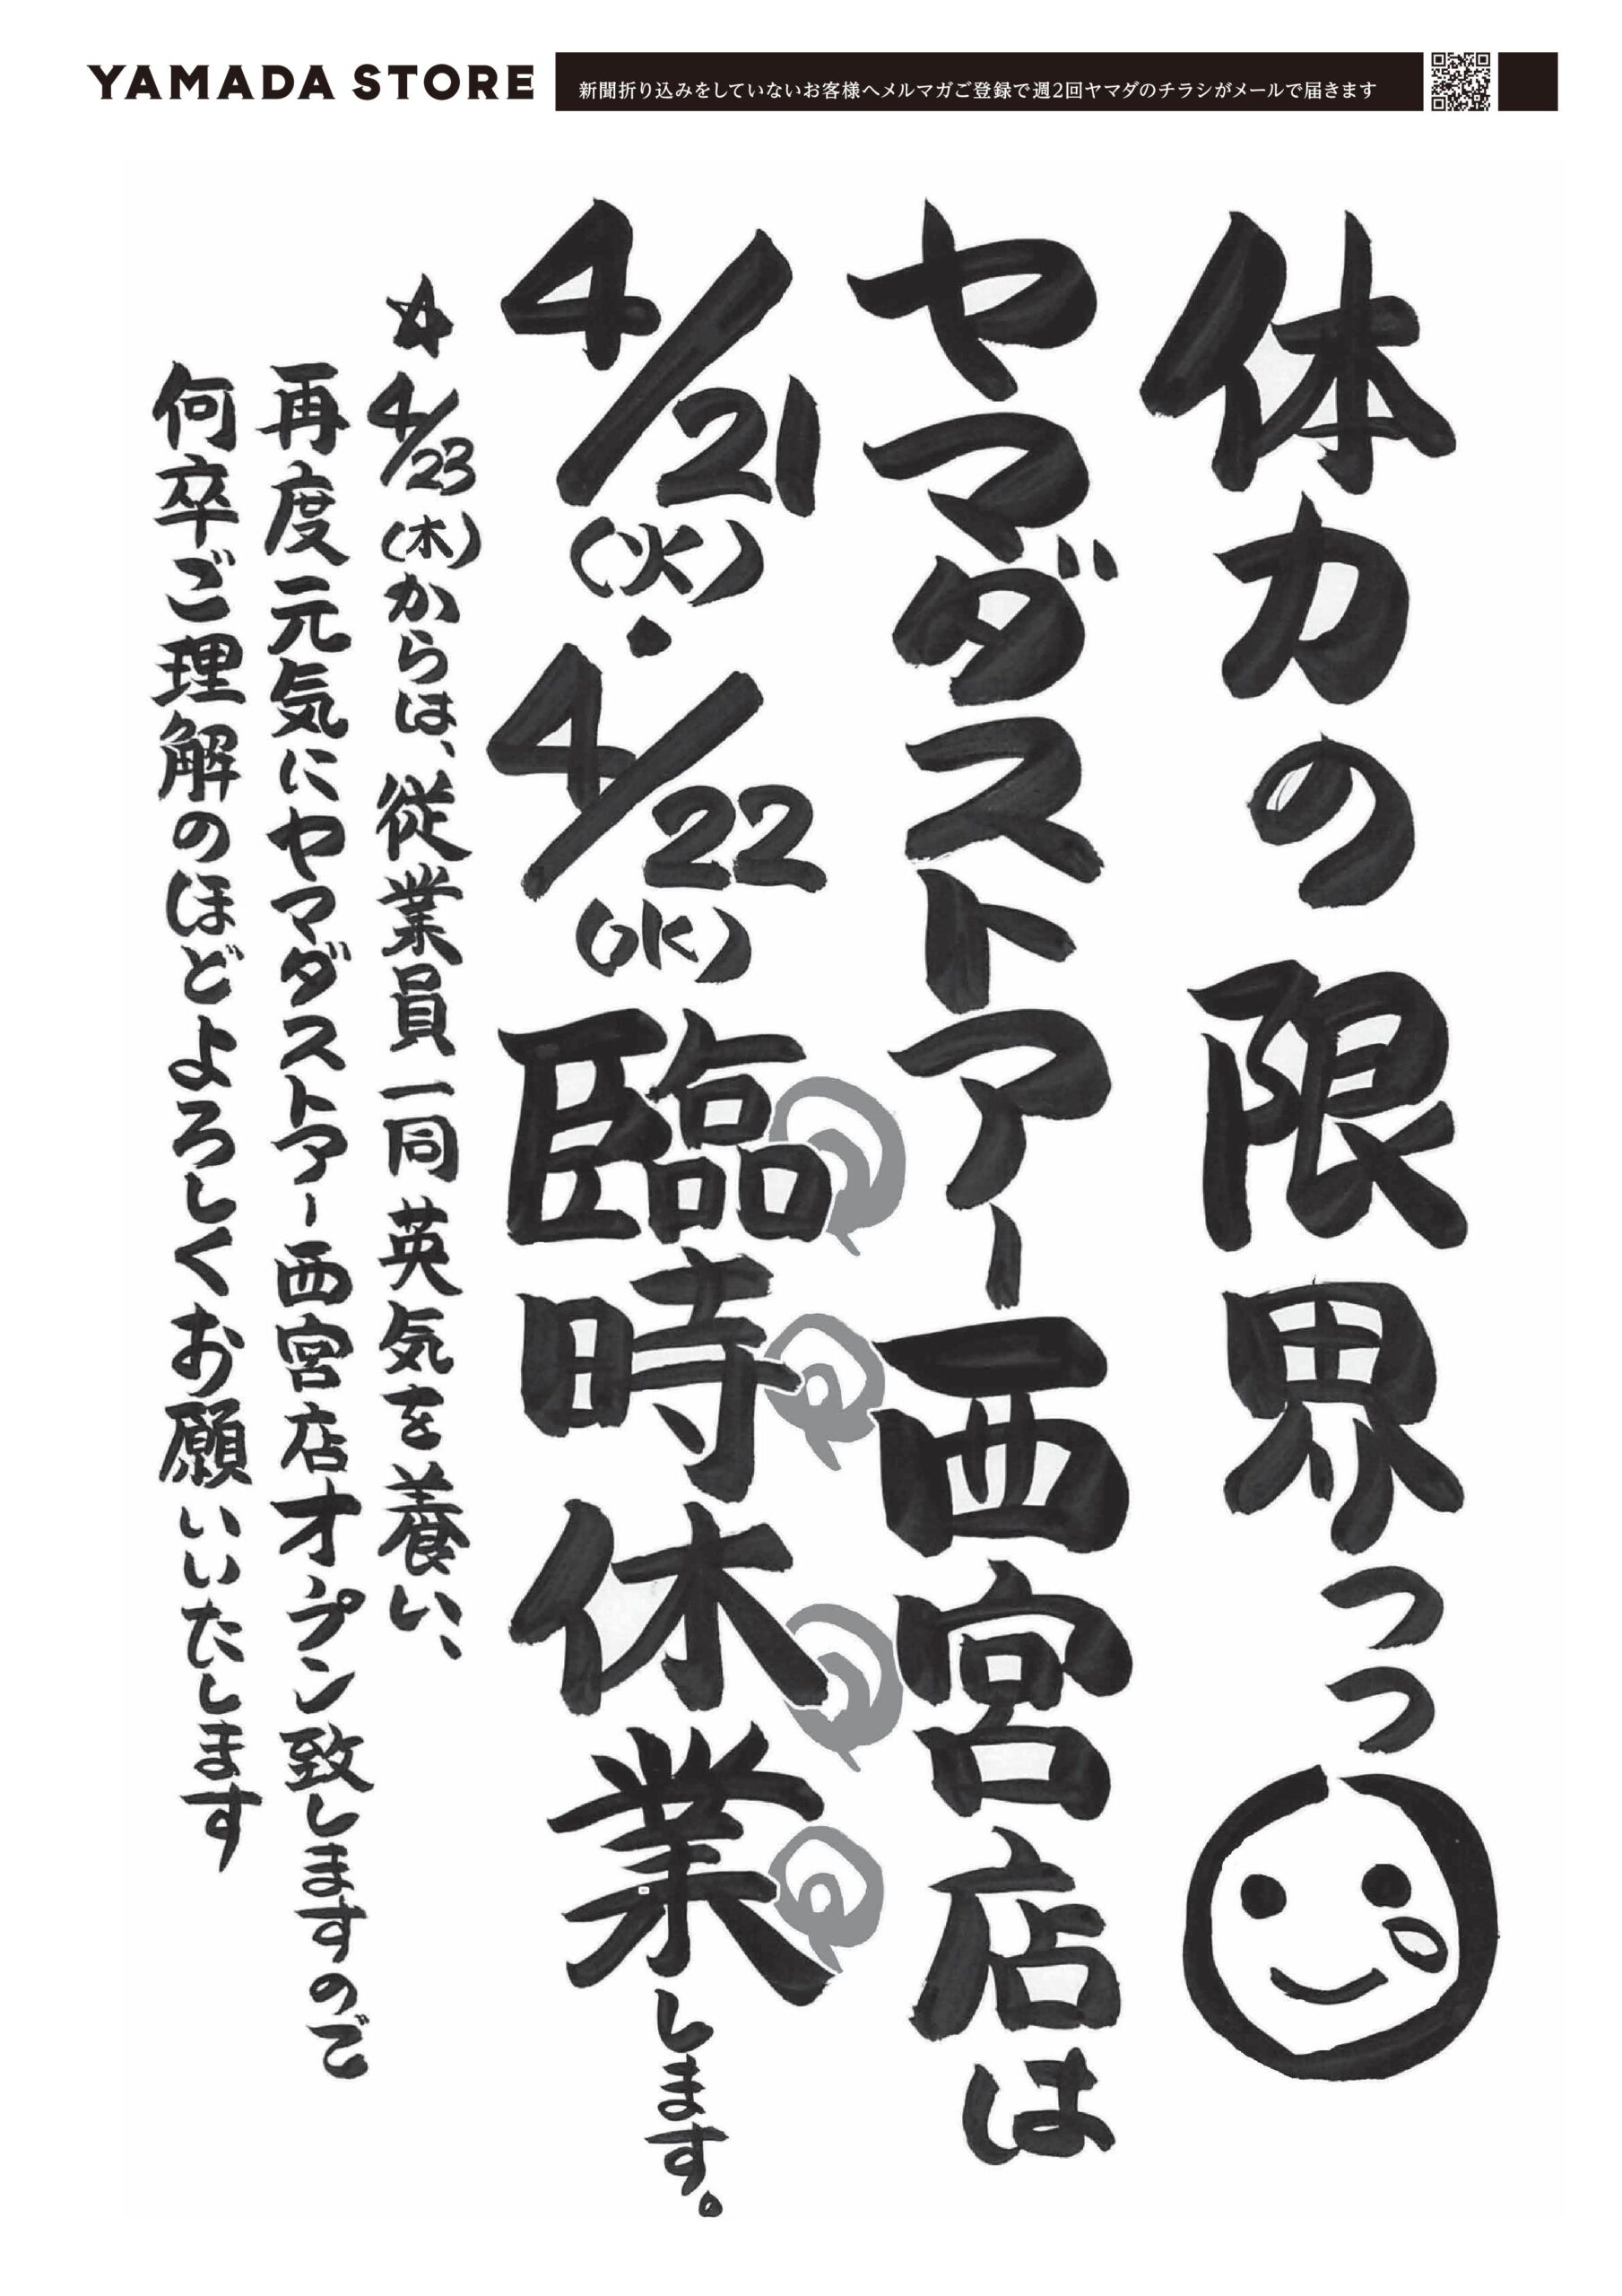 YAMADA STORE
新聞折り込みをしていないお客様へメルマガご登録で週2回ヤマダのチラシがメールで届きます
体力の限界っっ
ヤマダストアー西宮店は
4/21(火)・4/22(水)臨時休業します。
☆4/23(木)からは、従業員一同英気を養い、
再度元気にヤマダストアー西宮店オープン致しますのでご
何卒ご理解のほどよろしくお願いいたします